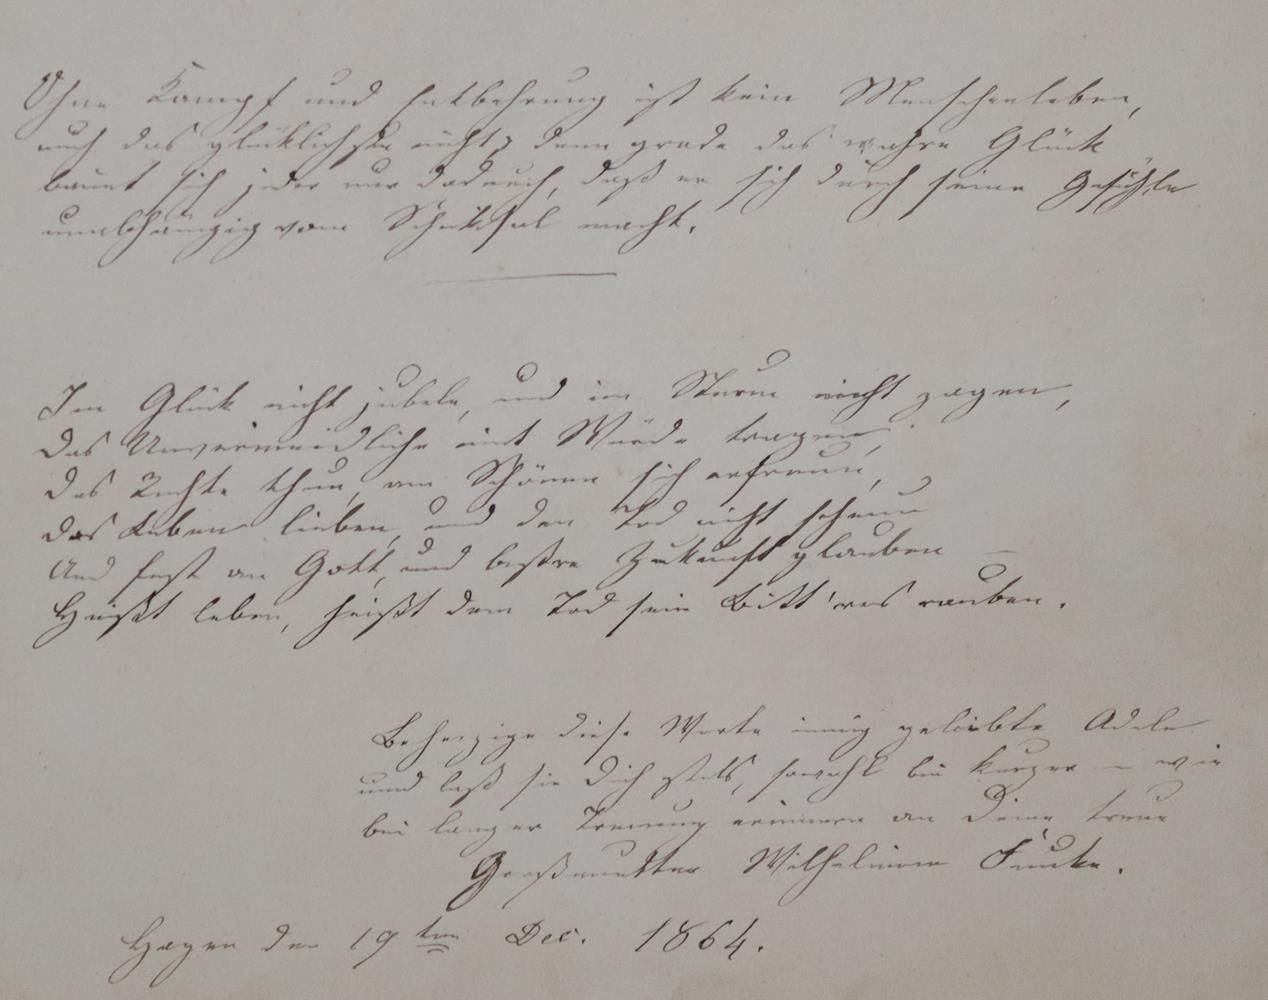 Ohne Kampf und Entbehrung ist kein Menschenleben,
auch das glücklichste nicht, denn grade das wahre Glück
baut sich jeder nur dadurch, daß er sich durch seine Gefühle
unabhängig vom Schicksal macht.
Im Glück nicht jubeln, und im Sturm nicht zagen,
Das Unvermeidliche mit Würde tragen,
Das Rechte thun, am Schönen sich erfreun,
Das Leben lieben, und den Tod nicht scheun
Und fest an Gott, und beßre Zukunft glauben –
Heißt leben, heißt dem Tod sein Bitt'res rauben.
Beherzige diese Worte innig geliebte Adele
und laß sie Dich stets, sowohl bei kurzer – wie
bei langer Trennung erinnern an Deine treue
Großmutter Wilhelmine
Hagen den 19ten Dec. 1864.